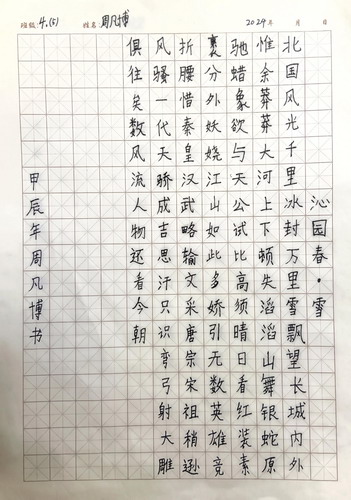 班级:4.(5) 姓名 周凡博 2024年 月 日
沁园春·雪
北国风光千里冰封万里雪飘望长城内外
惟余莽莽大河上下顿失滔滔山舞银蛇原
驰蜡象欲与天公试比高须晴日看红装素
裹分外妖娆江山如此多娇引无数英雄竞
折腰惜秦皇汉武略输文采唐宗宋祖稍逊
风骚一代天骄成吉思汗只识弯弓射大雕
俱往矣数风流人物还看今朝
甲辰年周凡博书